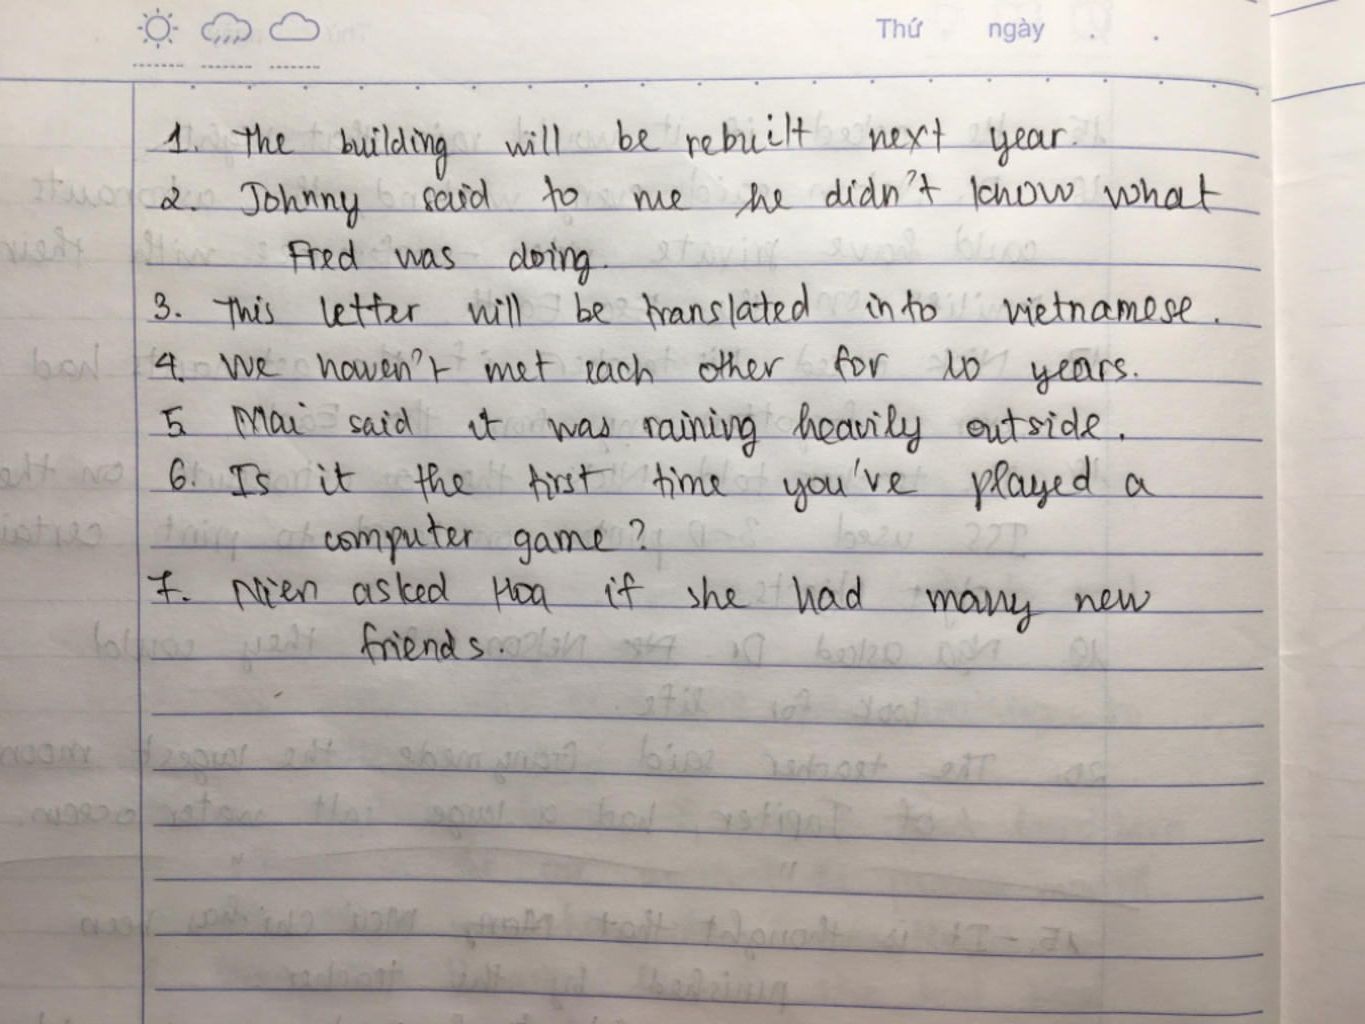 Thứ ngày . .
1. The building will be rebuilt next year.
2. Johnny said to me he didn't know what
Fred was doing.
3. This letter will be translated into vietnamese.
4. We haven't met each other for 10 years.
5. Mai said it was raining heavily outside.
6. Is it the first time you've played a
computer game?
7. Nien asked Hoa if she had many new
friends.